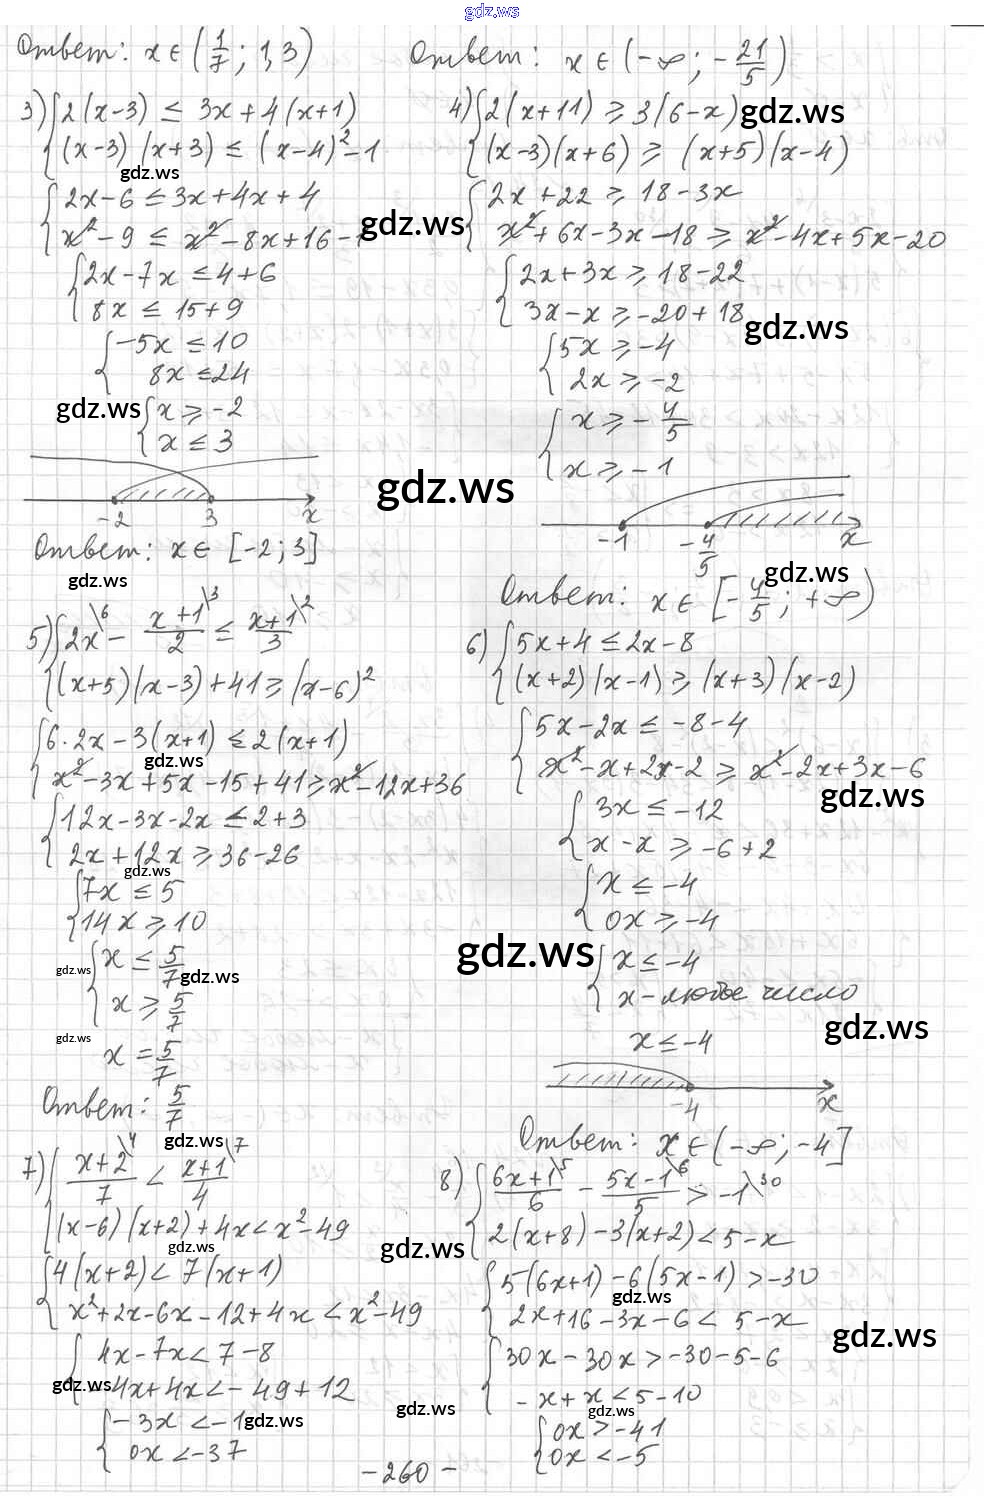 gdz.ws
Ответ: x ∈ (1/7; 1,3)
3) { 2(x-3) ≤ 3x+4(x+1)
(x-3)(x+3) ≤ (x-4)²-1
gdz.ws
{ 2x-6 ≤ 3x+4x+4
x²-9 ≤ x²-8x+16-1
gdz.ws
{ 2x-7x ≤ 4+6
8x ≤ 15+9
{ -5x ≤ 10
8x ≤ 24
gdz.ws
{ x ≥ -2
x ≤ 3
-2 3 x
gdz.ws
Ответ: x ∈ [-2; 3]
gdz.ws
Ответ: x ∈ (-∞; -21/5)
4) { 2(x+11) ≥ 3(6-x)
gdz.ws
(x-3)(x+6) ≥ (x+5)(x-4)
{ 2x+22 ≥ 18-3x
x²+6x-3x-18 ≥ x²-4x+5x-20
{ 2x+3x ≥ 18-22
3x-x ≥ -20+18
gdz.ws
{ 5x ≥ -4
2x ≥ -2
{ x ≥ -4/5
x ≥ -1
-1 -4/5 x
gdz.ws
Ответ: x ∈ [-4/5; +∞)
5) { 2x\6 - (x+1)/2\3 ≤ (x+1)/3\2
(x+5)(x-3)+41 ≥ (x-6)²
{ 6·2x-3(x+1) ≤ 2(x+1)
gdz.ws
x²-3x+5x-15+41 ≥ x²-12x+36
{ 12x-3x-2x ≤ 2+3
2x+12x ≥ 36-26
gdz.ws
{ 7x ≤ 5
14x ≥ 10
gdz.ws
{ x ≤ 5/7
gdz.ws
x ≥ 5/7
gdz.ws
x = 5/7
Ответ: 5/7
gdz.ws
6) { 5x+4 ≤ 2x-8
(x+2)(x-1) ≥ (x+3)(x-2)
{ 5x-2x ≤ -8-4
x²-x+2x-2 ≥ x²-2x+3x-6
gdz.ws
{ 3x ≤ -12
x-x ≥ -6+2
{ x ≤ -4
0x ≥ -4
gdz.ws
{ x ≤ -4
x - любое число
gdz.ws
x ≤ -4
-4 x
Ответ: x ∈ (-∞; -4]
7) { (x+2)/7\4 < (x+1)/4\7
(x-6)(x+2)+4x < x²-49
gdz.ws
{ 4(x+2) < 7(x+1)
x²+2x-6x-12+4x < x²-49
{ 4x-7x < 7-8
gdz.ws
-4x+4x < -49+12
{ -3x < -1
gdz.ws
0x < -37
8) { (6x+1)/6\5 - (5x-1)/5\6 > -1\30
2(x+8)-3(x+2) < 5-x
gdz.ws
{ 5(6x+1)-6(5x-1) > -30
gdz.ws
2x+16-3x-6 < 5-x
gdz.ws
{ 30x-30x > -30-5-6
-x+x < 5-10
gdz.ws
gdz.ws
{ 0x > -41
0x < -5
-260-